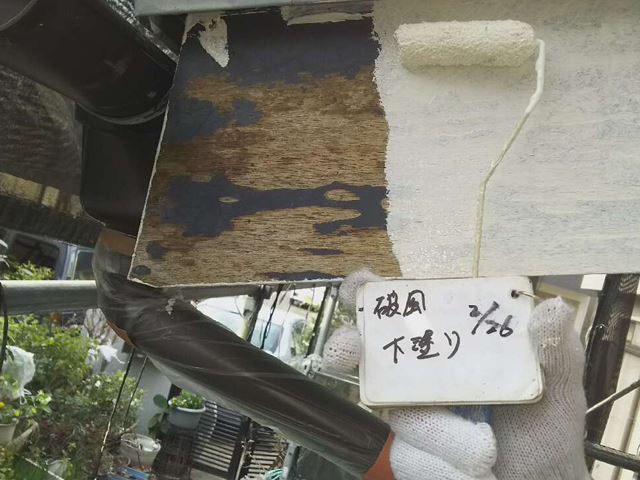 破風 2/26
下塗り